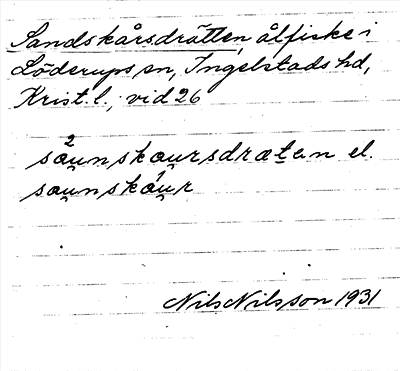 Sandskårsdrätten, ålfiske i
Löderups sn, Ingelstads hd,
Krist. l.; vid 26
2
sau̯nskau̯rsdrætan el.
sau̯nskáu̯r
Nils Nilsson 1931